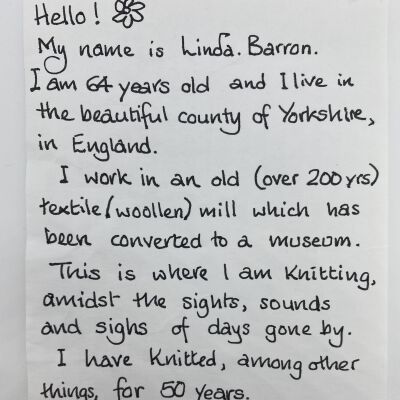 Hello!
My name is Linda. Barron.
I am 64 years old and I live in
the beautiful county of Yorkshire,
in England.
I work in an old (over 200 yrs)
textile (woollen) mill which has
been converted to a museum.
This is where I am Knitting,
amidst the sights, sounds
and sighs of days gone by.
I have Knitted, among other
things, for 50 years.